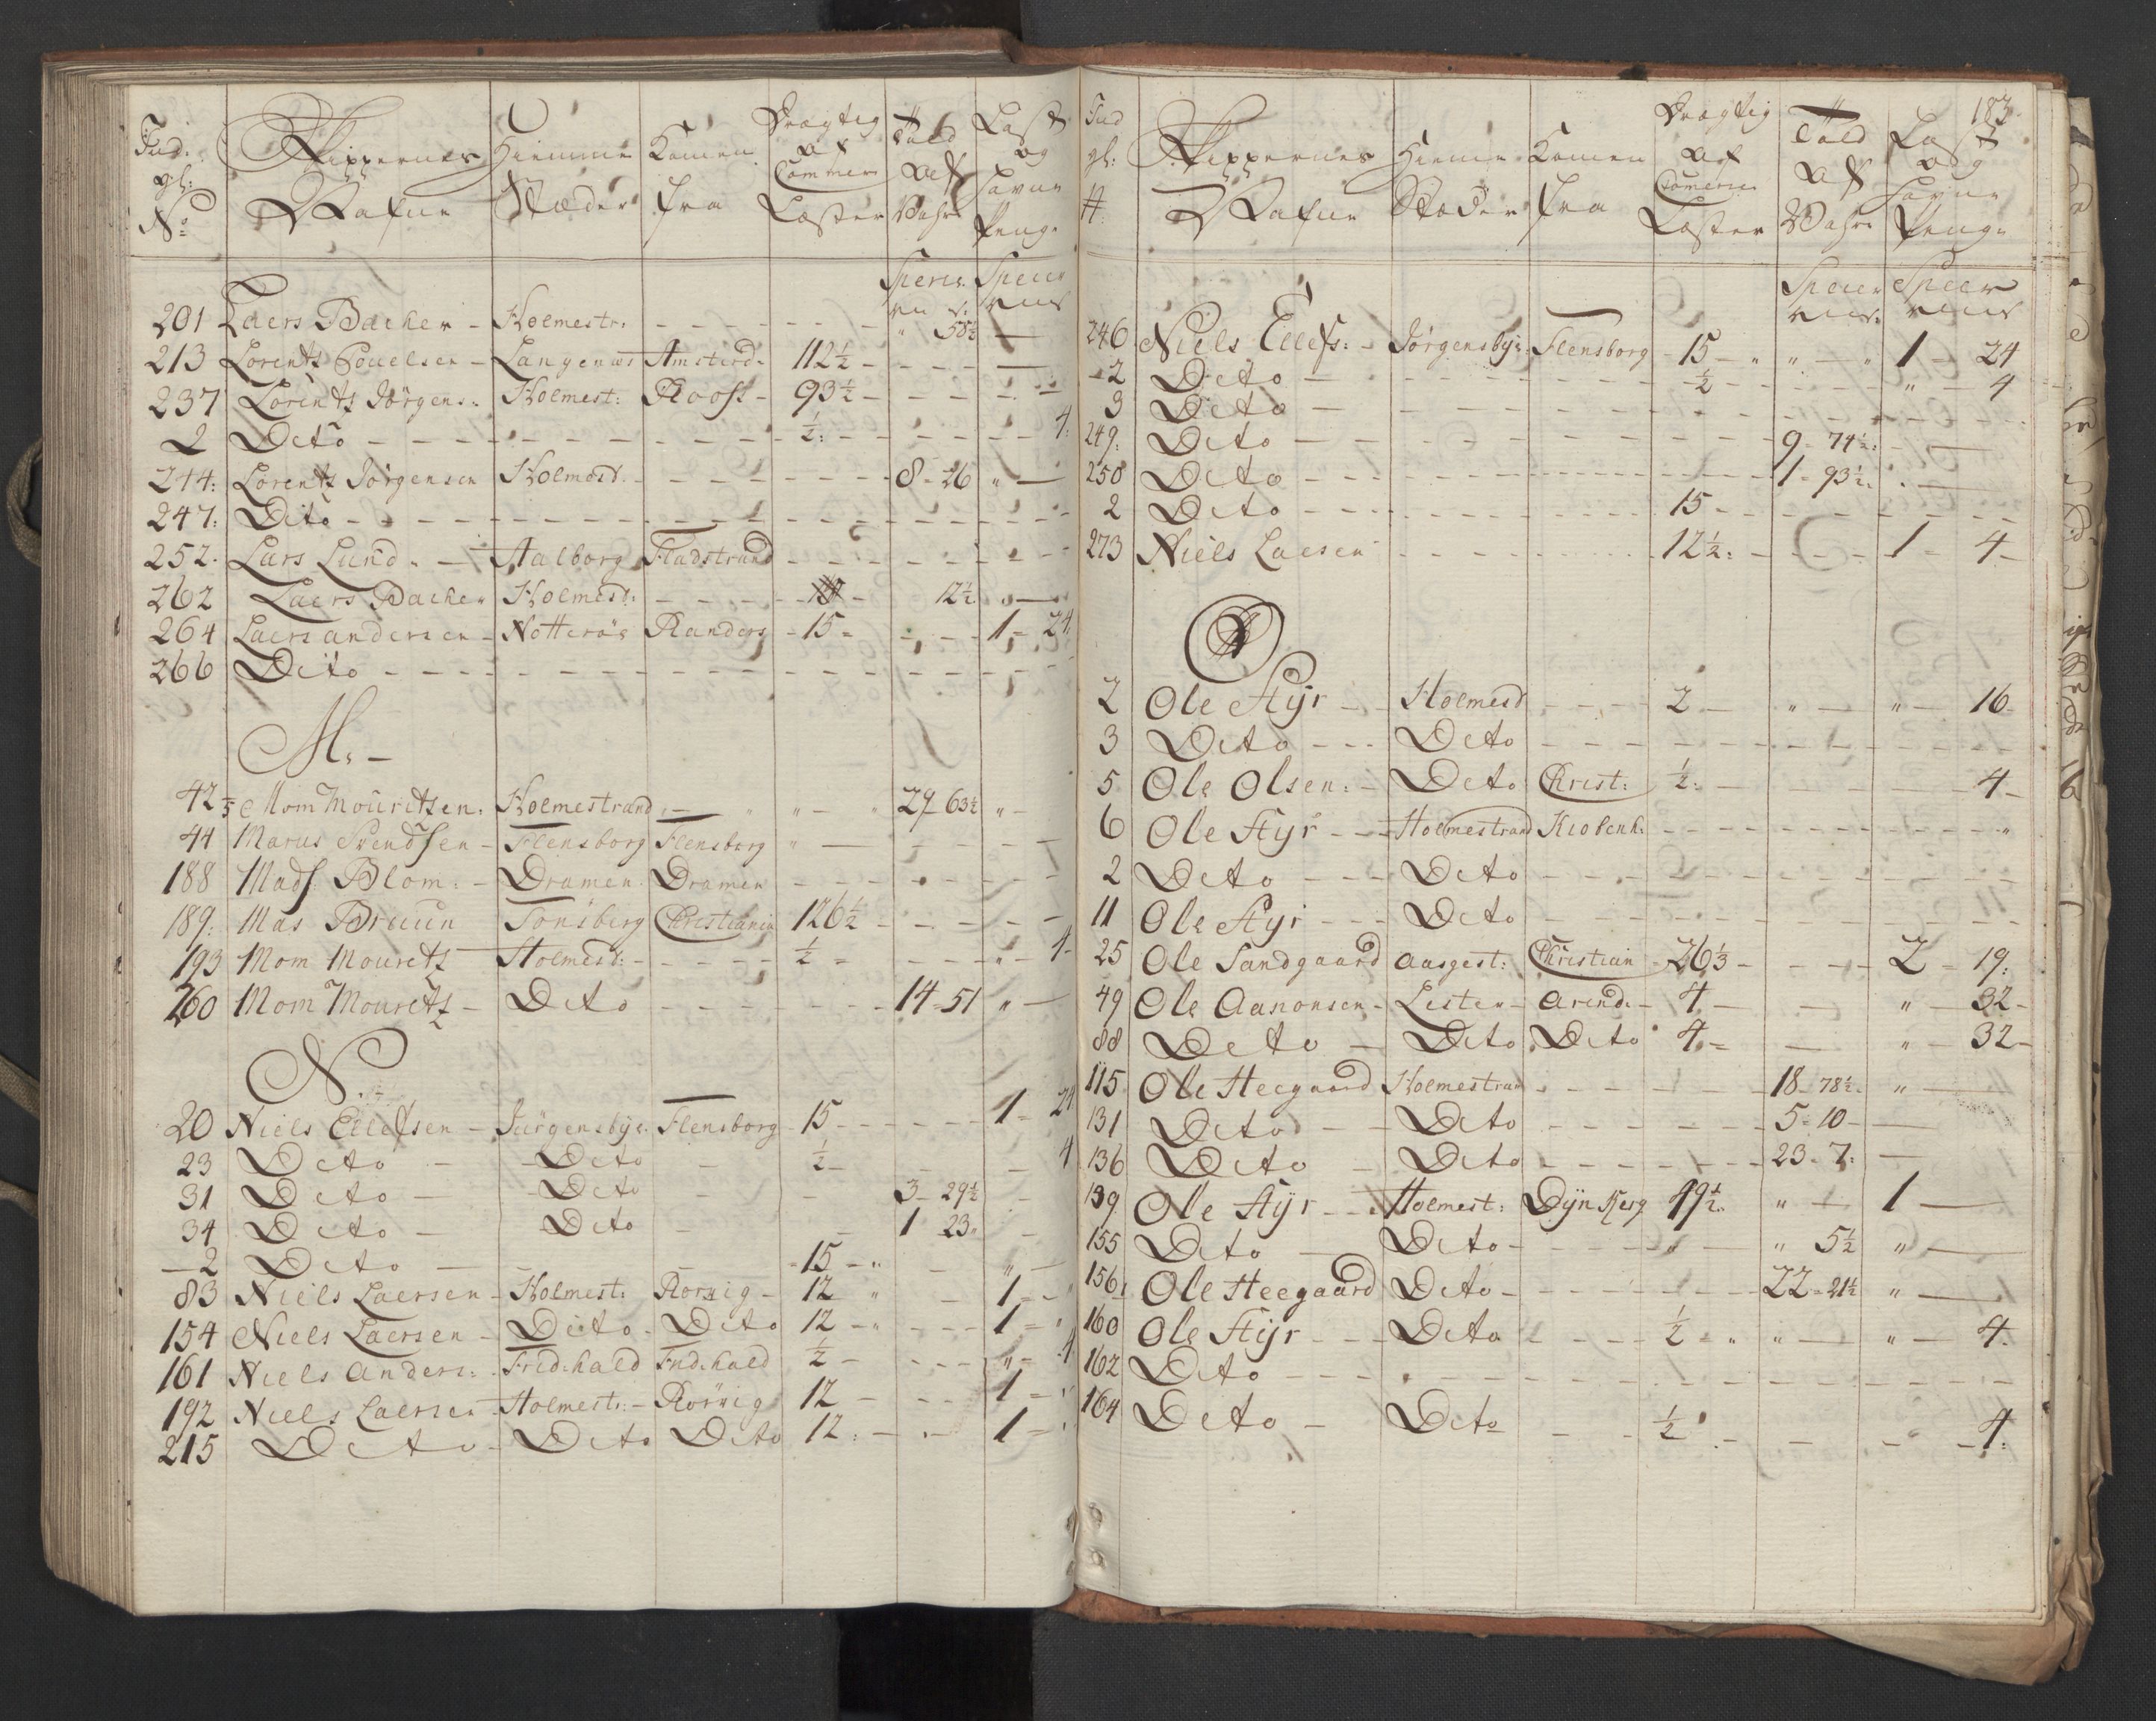 Ind. gl: No | Skippernes Nafne | Hiemme Stæder | Komen fra | Drægtig af Commer Læster | Told af Vahre | Last og Havne Penge
Species | Species
201 Laers Backer - Holmestr: - - - - - " 58½ —
213 Lorentz Pouelsen - Langenæs Amsterd. 112½ - - - —
237 Lorentz Jörgens: Holmest: Roost - 93½ - - - -
2 Dito - - - - - - - ½: - - - - 4:
244: Lorentz Jörgensen Holmesd. - - - - 8 - 26 " —
247: Dito - - - - - - - -
252. Lars Lund. - Aalborg Fladstrand - - - - -
262 Laers Backer Holmesd: - - - - 12½ . —
264 Laers andersen - Notteröe Randers - 15 - - - - 1 - 24
266 Dito - - - - - - - -
M. -
42⅗ Mom Mouritzen: Holmestrand - " " — " 29 - 63½ " -
44 Marus Svendsen - Flensborg Flensborg " — - - -
188 Mads Blom: - Dramen Dramen - - - - -
189: Mas Bruun Tonsberg Christiania 126½ - - - - -
193 Mom Mouretz Holmesd: - - - - ½ - - - - " - 4 -
260 Mom Mouretz - Dito - - - - - 14 - 51 " —
N. -
20 Niels Ellefsen - Jürgensbye Flensborg - 15 - - - - 1 - 24
23 Dito - - Dito - ½ - - - 4
31 Dito - - Dito - - 3 - 29½ -
34 Dito - Dito - - 1 23 " -
2 Dito - - - - 15 - " - " —
83 Niels Laersen - Holmest: Rorvig - 12 " - 1 - - "
154 Niels Laersen - Dito - Dito 12 - " - - - 1 - "
161 Niels Anders: - Fridehald Fridehald ½ - - - - " - 4
192 Niels Laersen - Holmestr: - Rorvig 12 - - - 1 - "
215 Dito - Dito Dito 12: - - - 1 - "
183.
Ind gl: N: | Skippernes Nafne | Hieme Stæder | Komen fra | Drægtig af Comerce Læster | Told af Vahre | Last og Havne Penge
Species | Species
246 Niels Ellefs: - Jörgensbye: Flensborg - 15 - " " — " 1 - 24
- 2 Dito - - - - - - ½ - - - - " - 4
3 Dito - - - - - - - - -
249: Dito - - - - - - - 9 - 74½: - —
250 Dito - - - - - - - 1 - 93½: . —
2 Dito - - - - - - 15 - - - - -
273 Niels Laesen - - - - - 12½: - - - - 1 - 4 -
O
2 Ole Styr - - Holmesd - - - - 2 — " — " — 16
3 Dito - - - Dito - - - - - - - -
5 Ole Olsen: - Dito Christ: ½: - - - - - 4 -
6 Ole Styr - - - Holmestrand Kiobenh: - - - - - - "
2 Dito - - - Dito - - - - - - -
11 Ole Styr - - - Dito - - - - - - -
25 Ole Sandgaard aasgest: Christian - 26⅓ - - - - 2 - 19:
49 Ole Aanonsen - Lister - arend: - 4 - — " — 32 -
88 Dito — Dito Dito 4 - — " — 32 -
115 Ole Heegaard Holmestran - - - - 18 - 78½ - " —
131 Dito - - Dito - - - - - 5 - 10 - —
136 Dito - Dito - - - - - 23 - 7: —
139 Ole Styr - - Holmest: Dynkerg 49½ .. " — 1 —
155 Dito - Dito - - - - " — " 5½ " —
156: Ole Heegaard Dito - - - - - 22 - 21½ " —
160 Ole Styr - - - Dito - - - ½ - " " — " — 4.
162 Dito - - - - - - - - - -
164 Dito - Dito - - ½ . - - - - 4: